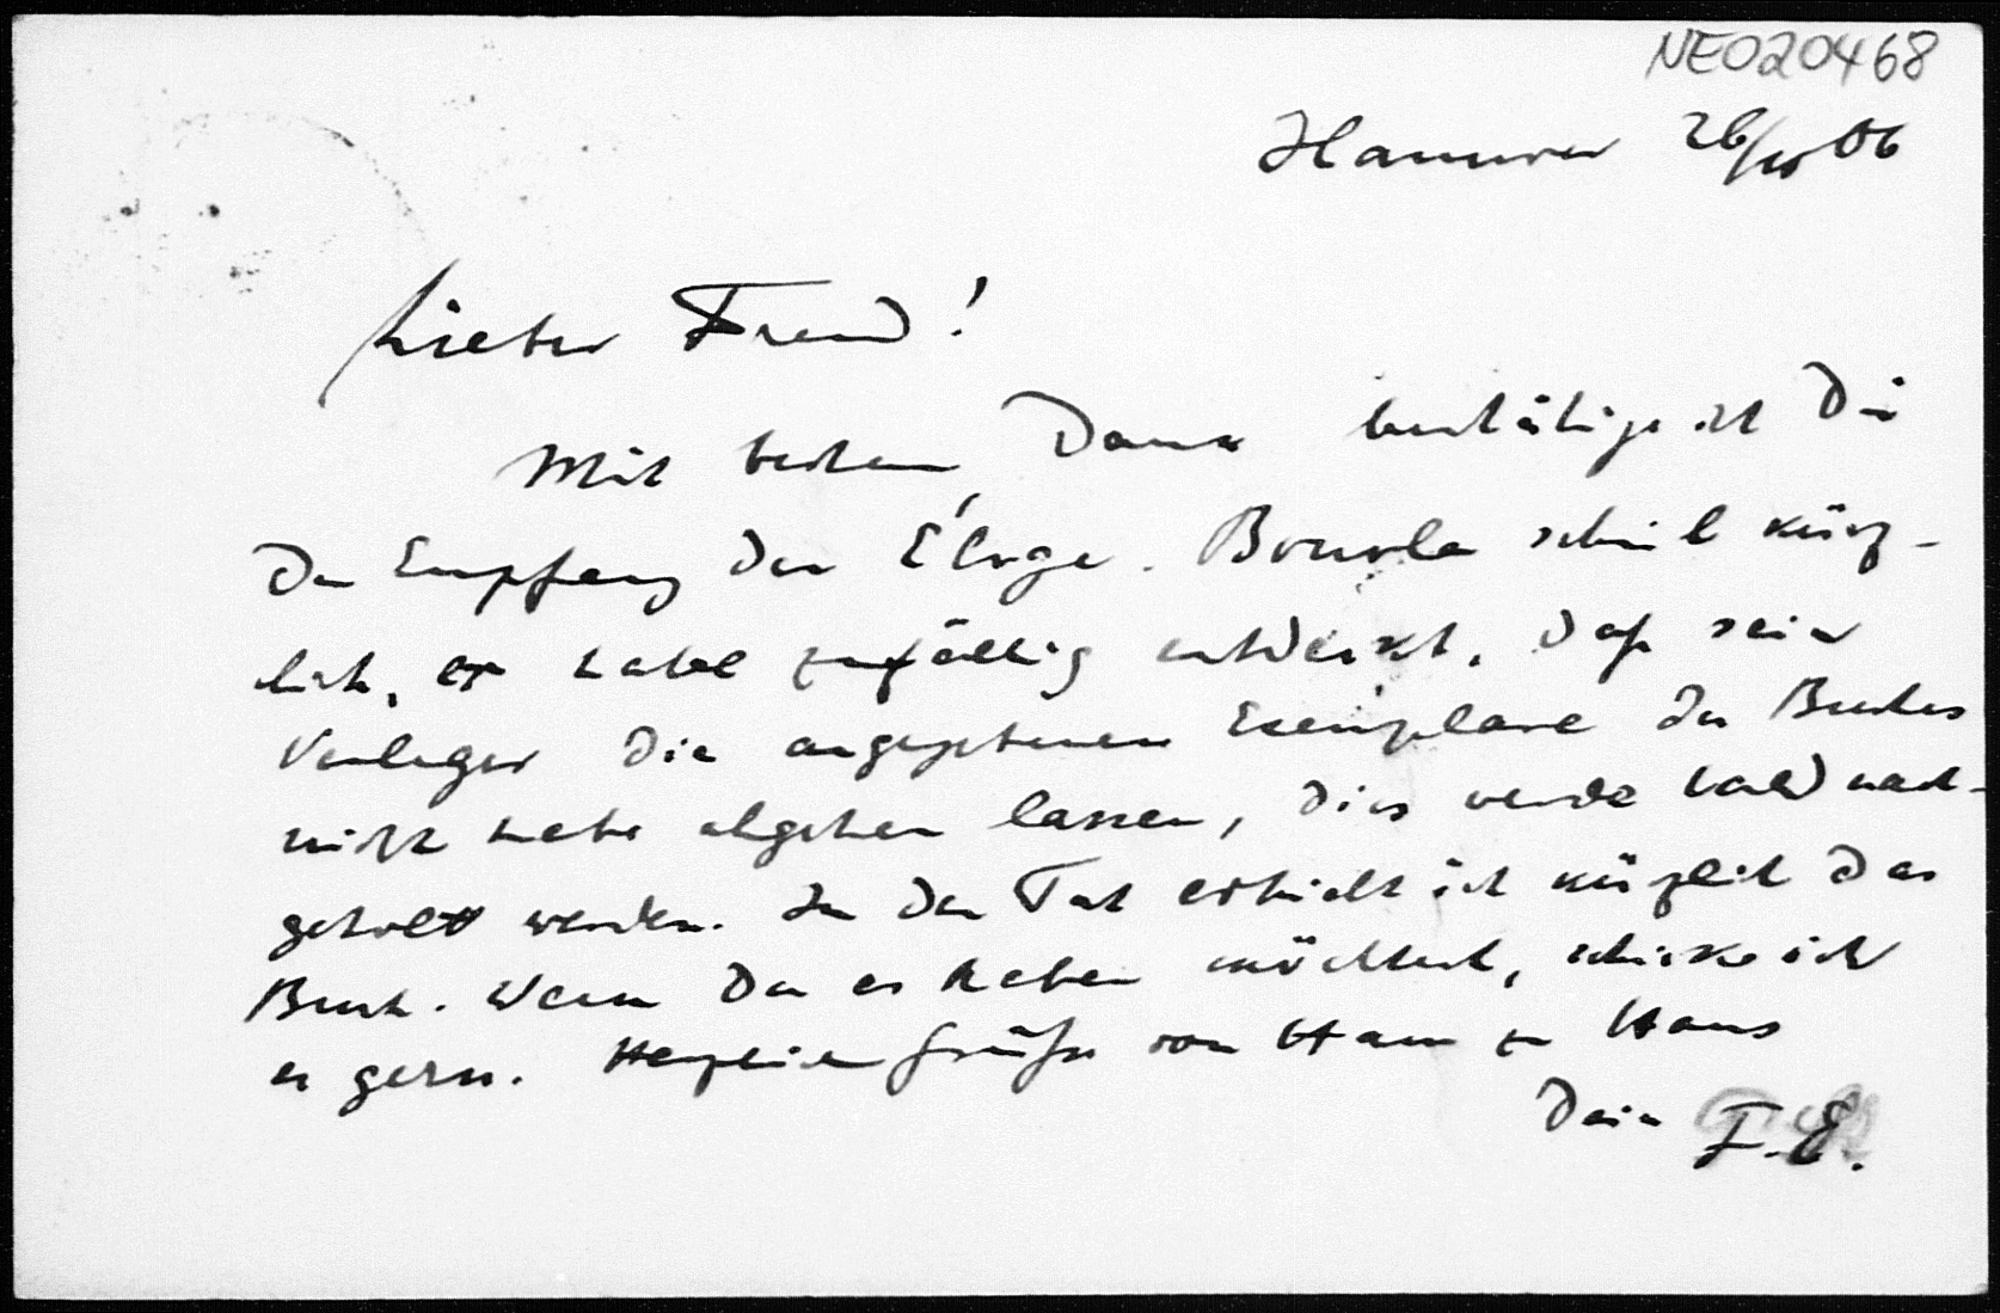 NE020468
Hannover 26/10 06
Lieber Freund!
Mit bestem Dank bestätige ich Dir
den Empfang der Éloge. Bonola schrieb kürz-
lich, er habe zufällig entdeckt, daß sein
Verleger die angegebenen Exemplare des Buches
nicht habe abgehen lassen, dies werde bald nach-
geholt werden. In der Tat erhielt ich kürzlich das
Buch. Wenn Du es haben möchtest, schicke ich
es gern. Herzliche Grüße von Haus zu Haus
Dein F. E.